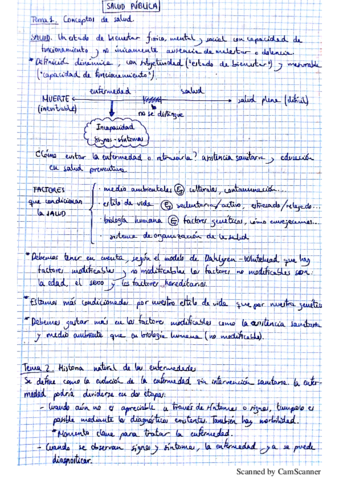 SALUD PÚBLICA
Tema 1. Conceptos de salud.
SALUD. Un estado de bienestar físico, mental y social con capacidad de
funcionamiento y no únicamente ausencia de malestar o dolencia.
* Definición dinámica, con subjetividad ("estado de bienestar") y mesurable
("capacidad de funcionamiento")
enfermedad salud
MUERTE salud plena (difícil)
(inevitable) no se distingue
Incapacidad
signos-síntomas
¿Cómo evitar la enfermedad o atenuarla? asistencia sanitaria y educación
en salud
FACTORES
que condicionan
la SALUD
· medio ambientales Ej culturales, contaminación...
· estilo de vida Ej sedentarismo/activo, estresado/relajado...
· biología humana Ej factores genéticos, cómo envejecemos...
· sistema de organización de la salud
* Debemos tener en cuenta, según el modelo de Dahlgren-Whitehead que hay
factores modificables y no modificables los factores no modificables son
la edad, el sexo y los factores hereditarios.
* Estamos más condicionados por nuestro estilo de vida que por nuestra genética
* Debemos gastar más en los factores modificables como la asistencia sanitaria
y medio ambiente que en biología humana (no modificable).
Tema 2. Historia natural de las enfermedades
Se define como la evolución de la enfermedad sin intervención sanitaria. La enfer-
medad podría dividirse en dos etapas:
- Cuando aún no es apreciable a través de síntomas o signos, tampoco es
posible mediante los diagnósticos existentes. También hay morbilidad.
* Momento clave para tratar la enfermedad.
- Cuando se observan signos y síntomas, la enfermedad ya se puede
diagnosticar.
Scanned by CamScanner